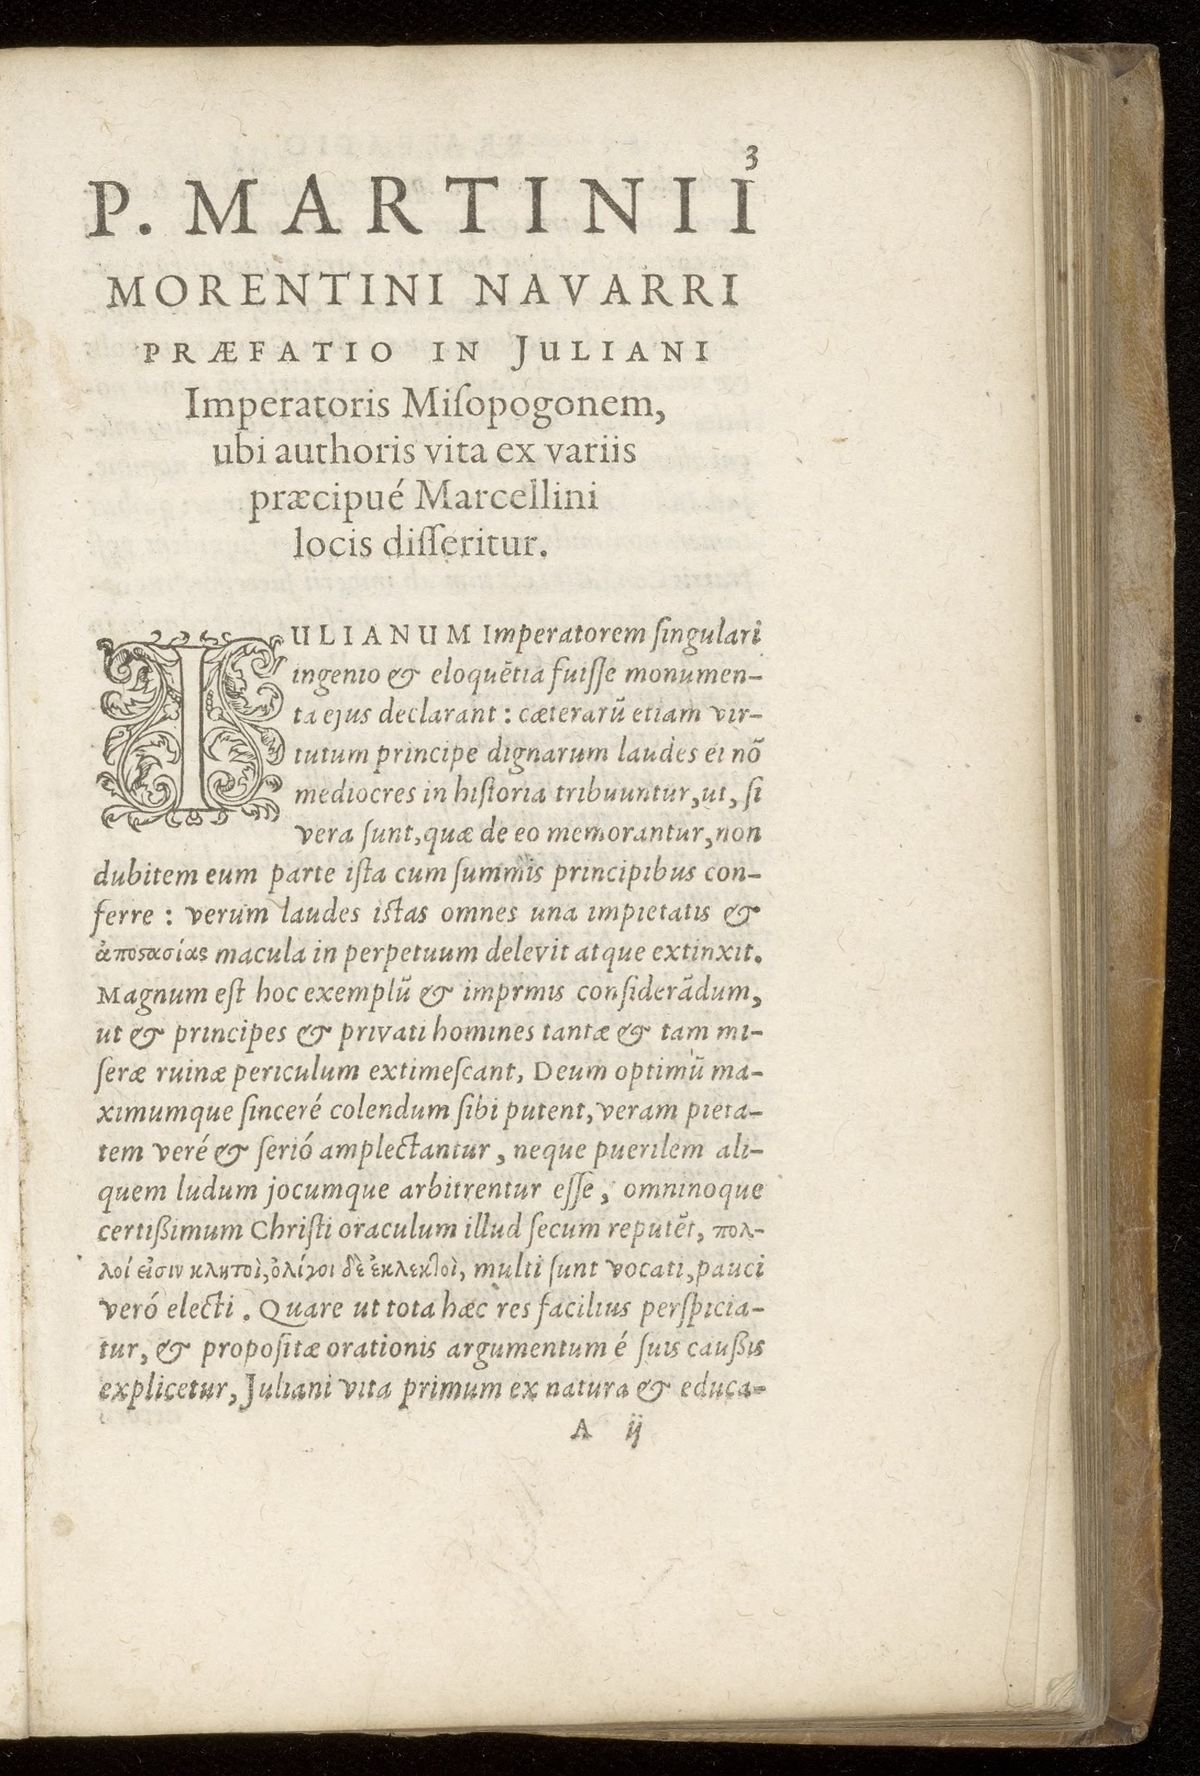 3
P. MARTINII
MORENTINI NAVARRI
PRÆFATIO IN JULIANI
Imperatoris Miſopogonem,
ubi authoris vita ex variis
præcipué Marcellini
locis diſſeritur.
IULIANUM Imperatorem ſingulari
ingenio & eloquẽtia fuiſſe monumen-
ta ejus declarant : cæterarũ etiam vir-
tutum principe dignarum laudes ei nõ
mediocres in hiſtoria tribuuntur, ut, ſi
vera ſunt, quæ de eo memorantur, non
dubitem eum parte iſta cum ſummis principibus con-
ferre : verum laudes iſtas omnes una impietatis &
ἀποϛασίας macula in perpetuum delevit atque extinxit.
Magnum eſt hoc exemplũ & imprmis conſiderãdum,
ut & principes & privati homines tantæ & tam mi-
ſeræ ruinæ periculum extimeſcant, Deum optimũ ma-
ximumque ſinceré colendum ſibi putent, veram pieta-
tem veré & ſerió amplectantur, neque puerilem ali-
quem ludum jocumque arbitrentur eſſe, omninoque
certißimum Chriſti oraculum illud ſecum reputẽt, πολ-
λοί εἰσιν κλητοὶ, ὀλίγοι δὲ ἐκλεκτοὶ, multi ſunt vocati, pauci
veró electi. Quare ut tota hæc res facilius perſpicia-
tur, & propoſitæ orationis argumentum é ſuis cauſsis
explicetur, Juliani vita primum ex natura & educa-
A ij